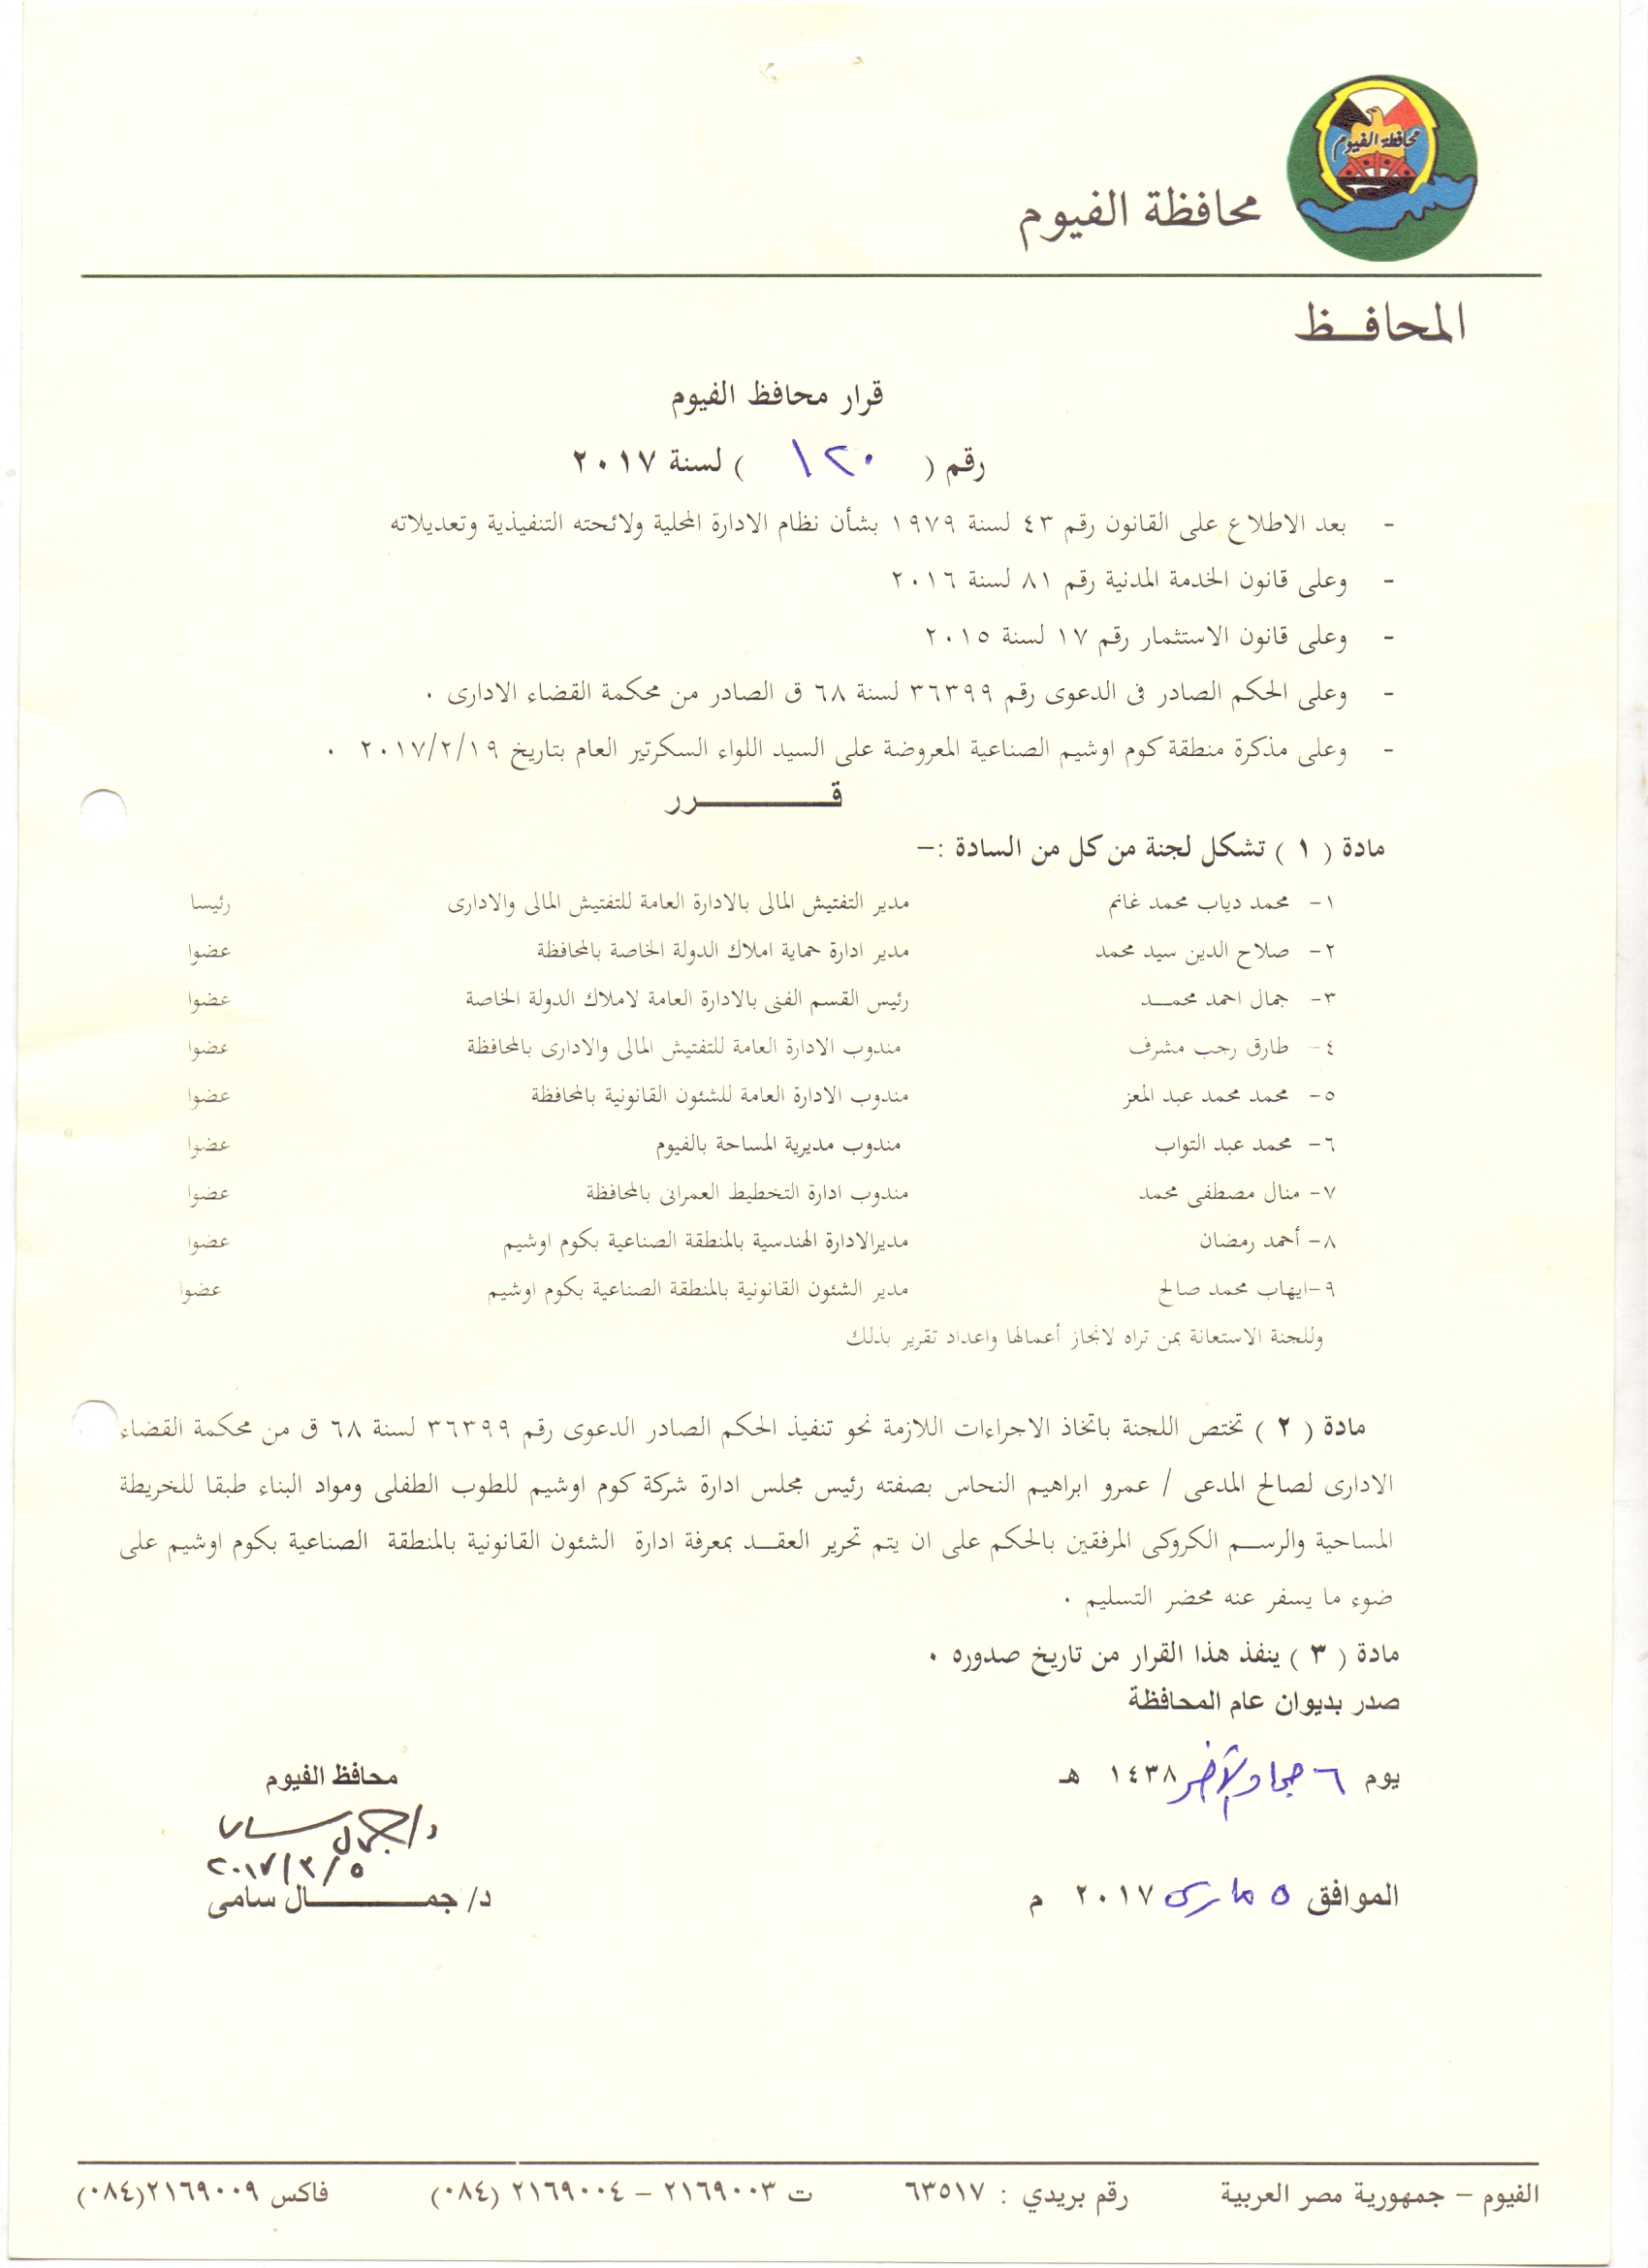 محافظة الفيوم
محافظة الفيوم
المحافــظ
قرار محافظ الفيوم
رقم ( ١٢٠ ) لسنة ٢٠١٧
- بعد الاطلاع على القانون رقم ٤٣ لسنة ١٩٧٩ بشأن نظام الادارة المحلية ولائحته التنفيذية وتعديلاته
- وعلى قانون الخدمة المدنية رقم ٨١ لسنة ٢٠١٦
- وعلى قانون الاستثمار رقم ١٧ لسنة ٢٠١٥
- وعلى الحكم الصادر فى الدعوى رقم ٣٦٣٩٩ لسنة ٦٨ ق الصادر من محكمة القضاء الادارى .
- وعلى مذكرة منطقة كوم اوشيم الصناعية المعروضة على السيد اللواء السكرتير العام بتاريخ ٢٠١٧/٢/١٩ .
قــــــــرر
مادة ( ١ ) تشكل لجنة من كل من السادة :–
١- محمد دياب محمد غانم مدير التفتيش المالى بالادارة العامة للتفتيش المالى والادارى رئيسا
٢- صلاح الدين سيد محمد مدير ادارة حماية املاك الدولة الخاصة بالمحافظة عضوا
٣- جمال احمد محمــد رئيس القسم الفنى بالادارة العامة لاملاك الدولة الخاصة عضوا
٤- طارق رجب مشرف مندوب الادارة العامة للتفتيش المالى والادارى بالمحافظة عضوا
٥- محمد محمد عبد المعز مندوب الادارة العامة للشئون القانونية بالمحافظة عضوا
٦- محمد عبد التواب مندوب مديرية المساحة بالفيوم عضوا
٧- منال مصطفى محمد مندوب ادارة التخطيط العمرانى بالمحافظة عضوا
٨- أحمد رمضان مديرالادارة الهندسية بالمنطقة الصناعية بكوم اوشيم عضوا
٩-ايهاب محمد صالح مدير الشئون القانونية بالمنطقة الصناعية بكوم اوشيم عضوا
وللجنة الاستعانة بمن تراه لانجاز أعمالها واعداد تقرير بذلك
مادة ( ٢ ) تختص اللجنة باتخاذ الاجراءات اللازمة نحو تنفيذ الحكم الصادر الدعوى رقم ٣٦٣٩٩ لسنة ٦٨ ق من محكمة القضاء
الادارى لصالح المدعى / عمرو ابراهيم النحاس بصفته رئيس مجلس ادارة شركة كوم اوشيم للطوب الطفلى ومواد البناء طبقا للخريطة
المساحية والرســم الكروكى المرفقين بالحكم على ان يتم تحرير العقــد بمعرفة ادارة الشئون القانونية بالمنطقة الصناعية بكوم اوشيم على
ضوء ما يسفر عنه محضر التسليم .
مادة ( ٣ ) ينفذ هذا القرار من تاريخ صدوره .
صدر بديوان عام المحافظة
يوم ٦ جماد الآخر ١٤٣٨ هـ
الموافق ٥ مارس ٢٠١٧ م
محافظ الفيوم
د/جمال سامى
٢٠١٧/٣/٥
د/ جمـــــــال سامى
الفيوم – جمهورية مصر العربية رقم بريدي : ٦٣٥١٧ ت ٢١٦٩٠٠٣ – ٢١٦٩٠٠٤ (٠٨٤) فاكس ٢١٦٩٠٠٩(٠٨٤)